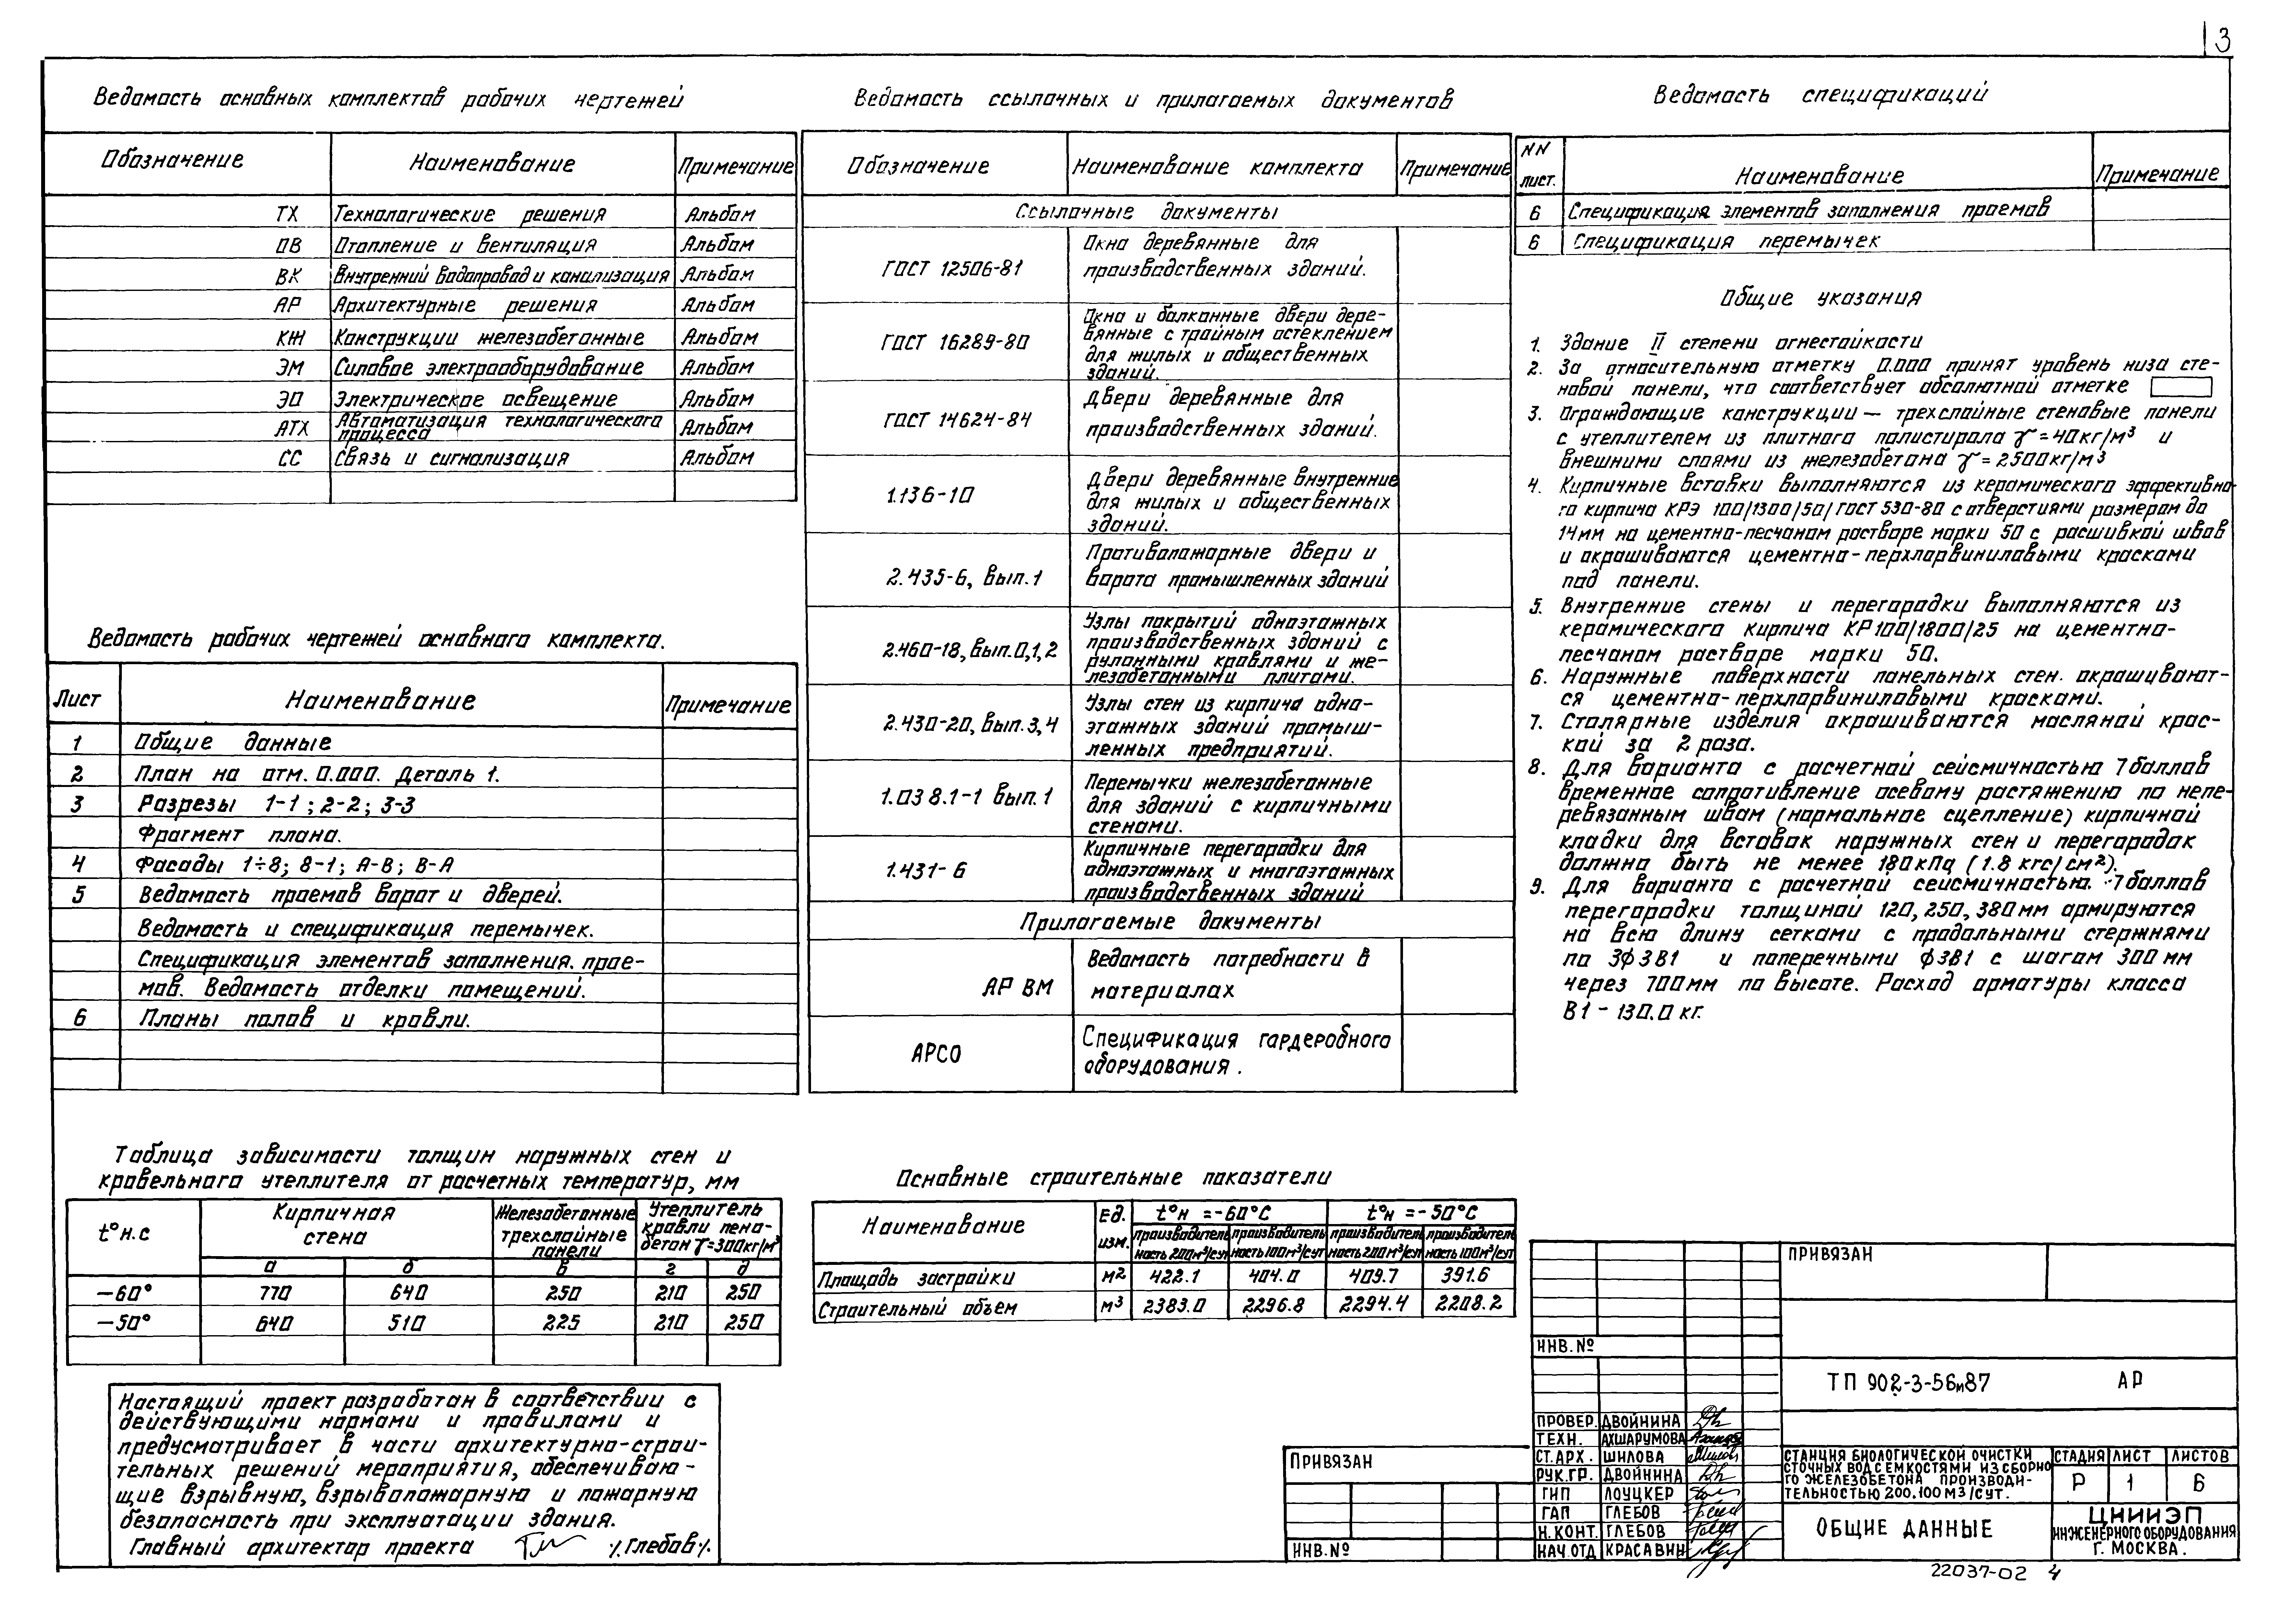 3
Ведомость основных комплектов рабочих чертежей
Обозначение Наименование Примечание
ТХ Технологические решения Альбом
ОВ Отопление и вентиляция Альбом
ВК Внутренний водопровод и канализация Альбом
АР Архитектурные решения Альбом
КЖ Конструкции железобетонные Альбом
ЭМ Силовое электрооборудование Альбом
ЭО Электрическое освещение Альбом
АТХ Автоматизация технологического
процесса Альбом
СС Связь и сигнализация Альбом
Ведомость рабочих чертежей основного комплекта.
Лист Наименование Примечание
1 Общие данные
2 План на отм. 0.000. Деталь 1.
3 Разрезы 1-1; 2-2; 3-3
Фрагмент плана.
4 Фасады 1÷8; 8-1; А-В; В-А
5 Ведомость проемов ворот и дверей.
Ведомость и спецификация перемычек.
Спецификация элементов заполнения. прое-
мов. Ведомость отделки помещений.
6 Планы полов и кровли.
Таблица зависимости толщин наружных стен и
кровельного утеплителя от расчетных температур, мм
t°н.с Кирпичная
стена Железобетонные
трехслойные
панели Утеплитель
кровли пено-
бетон γ=300кг/м³
а б в г д
-60° 770 640 250 210 250
-50° 640 510 225 210 250
Настоящий проект разработан в соответствии с
действующими нормами и правилами и
предусматривает в части архитектурно-строи-
тельных решений мероприятия, обеспечиваю-
щие взрывную, взрывопожарную и пожарную
безопасность при эксплуатации здания.
Главный архитектор проекта /.Глебов/.
Ведомость ссылочных и прилагаемых документов
Обозначение Наименование комплекта Примечание
Ссылочные документы
ГОСТ 12506-81 Окна деревянные для
производственных зданий.
ГОСТ 16289-80 Окна и балконные двери дере-
вянные с тройным остеклением
для жилых и общественных
зданий.
ГОСТ 14624-84 Двери деревянные для
производственных зданий.
1.136-10 Двери деревянные внутренние
для жилых и общественных
зданий.
2.435-6, вып.1 Противопожарные двери и
ворота промышленных зданий
2.460-18, вып.0,1,2 Узлы покрытий одноэтажных
производственных зданий с
рулонными кровлями и же-
лезобетонными плитами.
2.430-20, вып.3,4 Узлы стен из кирпича одно-
этажных зданий промыш-
ленных предприятий.
1.038.1-1 вып.1 Перемычки железобетонные
для зданий с кирпичными
стенами.
1.431-6 Кирпичные перегородки для
одноэтажных и многоэтажных
производственных зданий
Прилагаемые документы
АР ВМ Ведомость потребности в
материалах
АРСО Спецификация гардеробного
оборудования.
Основные строительные показатели
Наименование Ед.
изм. t°н =-60°С t°н =-50°С
производитель
ность 200м³/сут производитель
ность 100м³/сут производитель
ность 200м³/сут производитель
ность 100м³/сут
Площадь застройки м² 422.1 404.0 409.7 391.6
Строительный объем м³ 2383.0 2296.8 2294.4 2208.2
Ведомость спецификаций
NN
лист. Наименование Примечание
6 Спецификация элементов заполнения проемов
6 Спецификация перемычек
Общие указания
1. Здание II степени огнестойкости
2. За относительную отметку 0.000 принят уровень низа сте-
новой панели, что соответствует абсолютной отметке
3. Ограждающие конструкции — трехслойные стеновые панели
с утеплителем из плитного полистирола γ=40кг/м³ и
внешними слоями из железобетона γ=2500кг/м³
4. Кирпичные вставки выполняются из керамического эффективно-
го кирпича КРЭ 100/1300/50/ГОСТ 530-80 с отверстиями размером до
14мм на цементно-песчаном растворе марки 50 с расшивкой швов
и окрашиваются цементно-перхлорвиниловыми красками
под панели.
5. Внутренние стены и перегородки выполняются из
керамического кирпича КР100/1800/25 на цементно-
песчаном растворе марки 50.
6. Наружные поверхности панельных стен. окрашивают-
ся цементно-перхлорвиниловыми красками.
7. Столярные изделия окрашиваются масляной крас-
кой за 2 раза.
8. Для варианта с расчетной сейсмичностью 7баллов
временное сопротивление осевому растяжению по непе-
ревязанным швам (нормальное сцепление) кирпичной
кладки для вставок наружных стен и перегородок
должно быть не менее 180кПа (1.8 кгс/см²).
9. Для варианта с расчетной сейсмичностью. 7баллов
перегородки толщиной 120, 250, 380мм армируются
на всю длину сетками с продольными стержнями
по 3ф3В1 и поперечными ф3В1 с шагом 300мм
через 700мм по высоте. Расход арматуры класса
В1 - 130.0 кг.
ПРИВЯЗАН
ИНВ.№
ПРИВЯЗАН
ИНВ.№
ТП 902-3-56м87 АР
ПРОВЕР. ДВОЙНИНА
ТЕХН. АХШАРУМОВА
СТ.АРХ. ШИЛОВА
РУК.ГР. ДВОЙНИНА
ГИП ЛОУЦКЕР
ГАП ГЛЕБОВ
Н.КОНТ. ГЛЕБОВ
НАЧ.ОТД КРАСАВИН
СТАНЦИЯ БИОЛОГИЧЕСКОЙ ОЧИСТКИ
СТОЧНЫХ ВОД С ЕМКОСТЯМИ ИЗ СБОРНО
ГО ЖЕЛЕЗОБЕТОНА ПРОИЗВОДИ-
ТЕЛЬНОСТЬЮ 200.100 М3/СУТ.
СТАДИЯ ЛИСТ ЛИСТОВ
Р 1 6
ОБЩИЕ ДАННЫЕ
ЦНИИЭП
ИНЖЕНЕРНОГО ОБОРУДОВАНИЯ
Г. МОСКВА.
22037-02 4